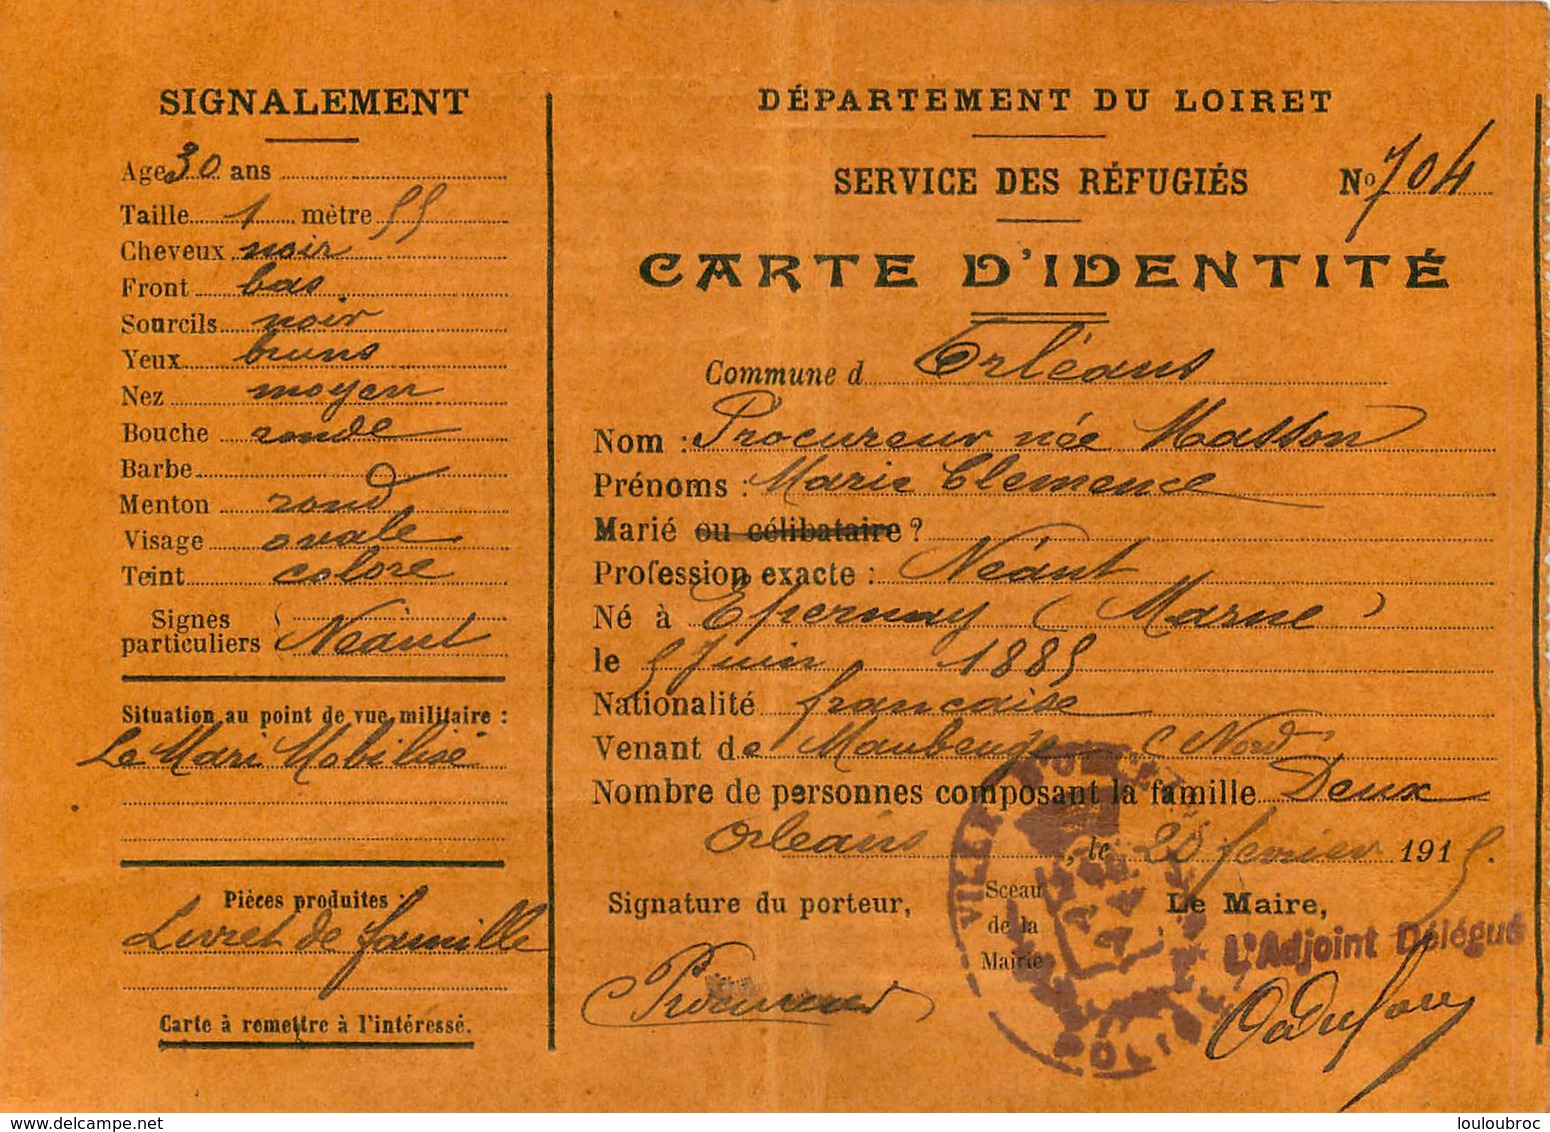 SIGNALEMENT
Age 30 ans
Taille 1 mètre 55
Cheveux noir
Front bas
Sourcils noir
Yeux bruns
Nez moyen
Bouche ronde
Barbe
Menton rond
Visage ovale
Teint coloré
Signes particuliers Néant
Situation au point de vue militaire :
Le Mari Mobilisé
Pièces produites :
Livret de famille
Carte à remettre à l'intéressé.
DÉPARTEMENT DU LOIRET
SERVICE DES RÉFUGIÉS No 704
CARTE D'IDENTITÉ
Commune d Orléans
Nom : Procureur née Masson
Prénoms : Marie Clemence
Marié ou célibataire ?
Profession exacte : Néant
Né à Epernay (Marne)
le 5 Juin 1885
Nationalité francaise
Venant de Maubeuge (Nord)
Nombre de personnes composant la famille Deux
Orleans, le 26 fevrier 1915.
Signature du porteur,
Sceau de la Mairie
Le Maire,
L'Adjoint Délégué
Procureur
VILLE D'ORLÉANS
POLICE
delcampe.net
louloubroc